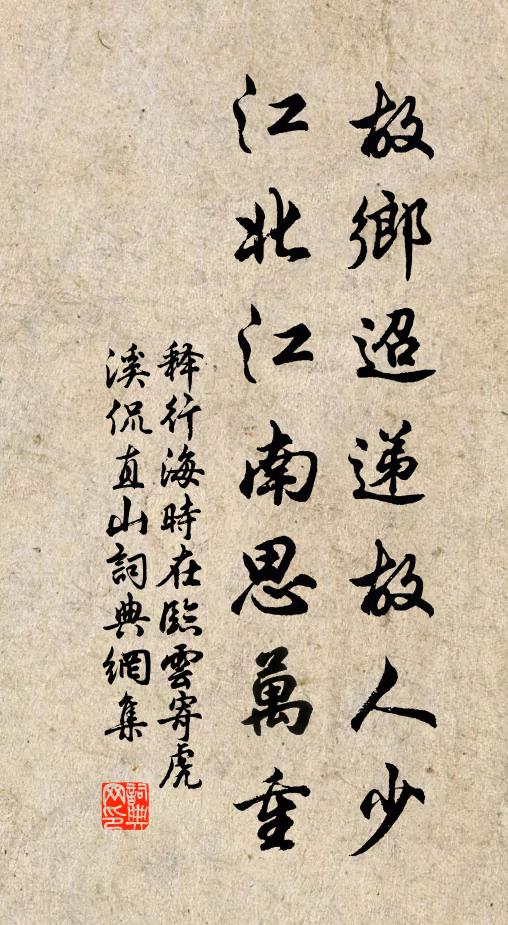 故鄉迢遞故人少
江北江南思萬重
釋行海時在臨雲寄虎
溪侃直山詞典網集
詞典
网印